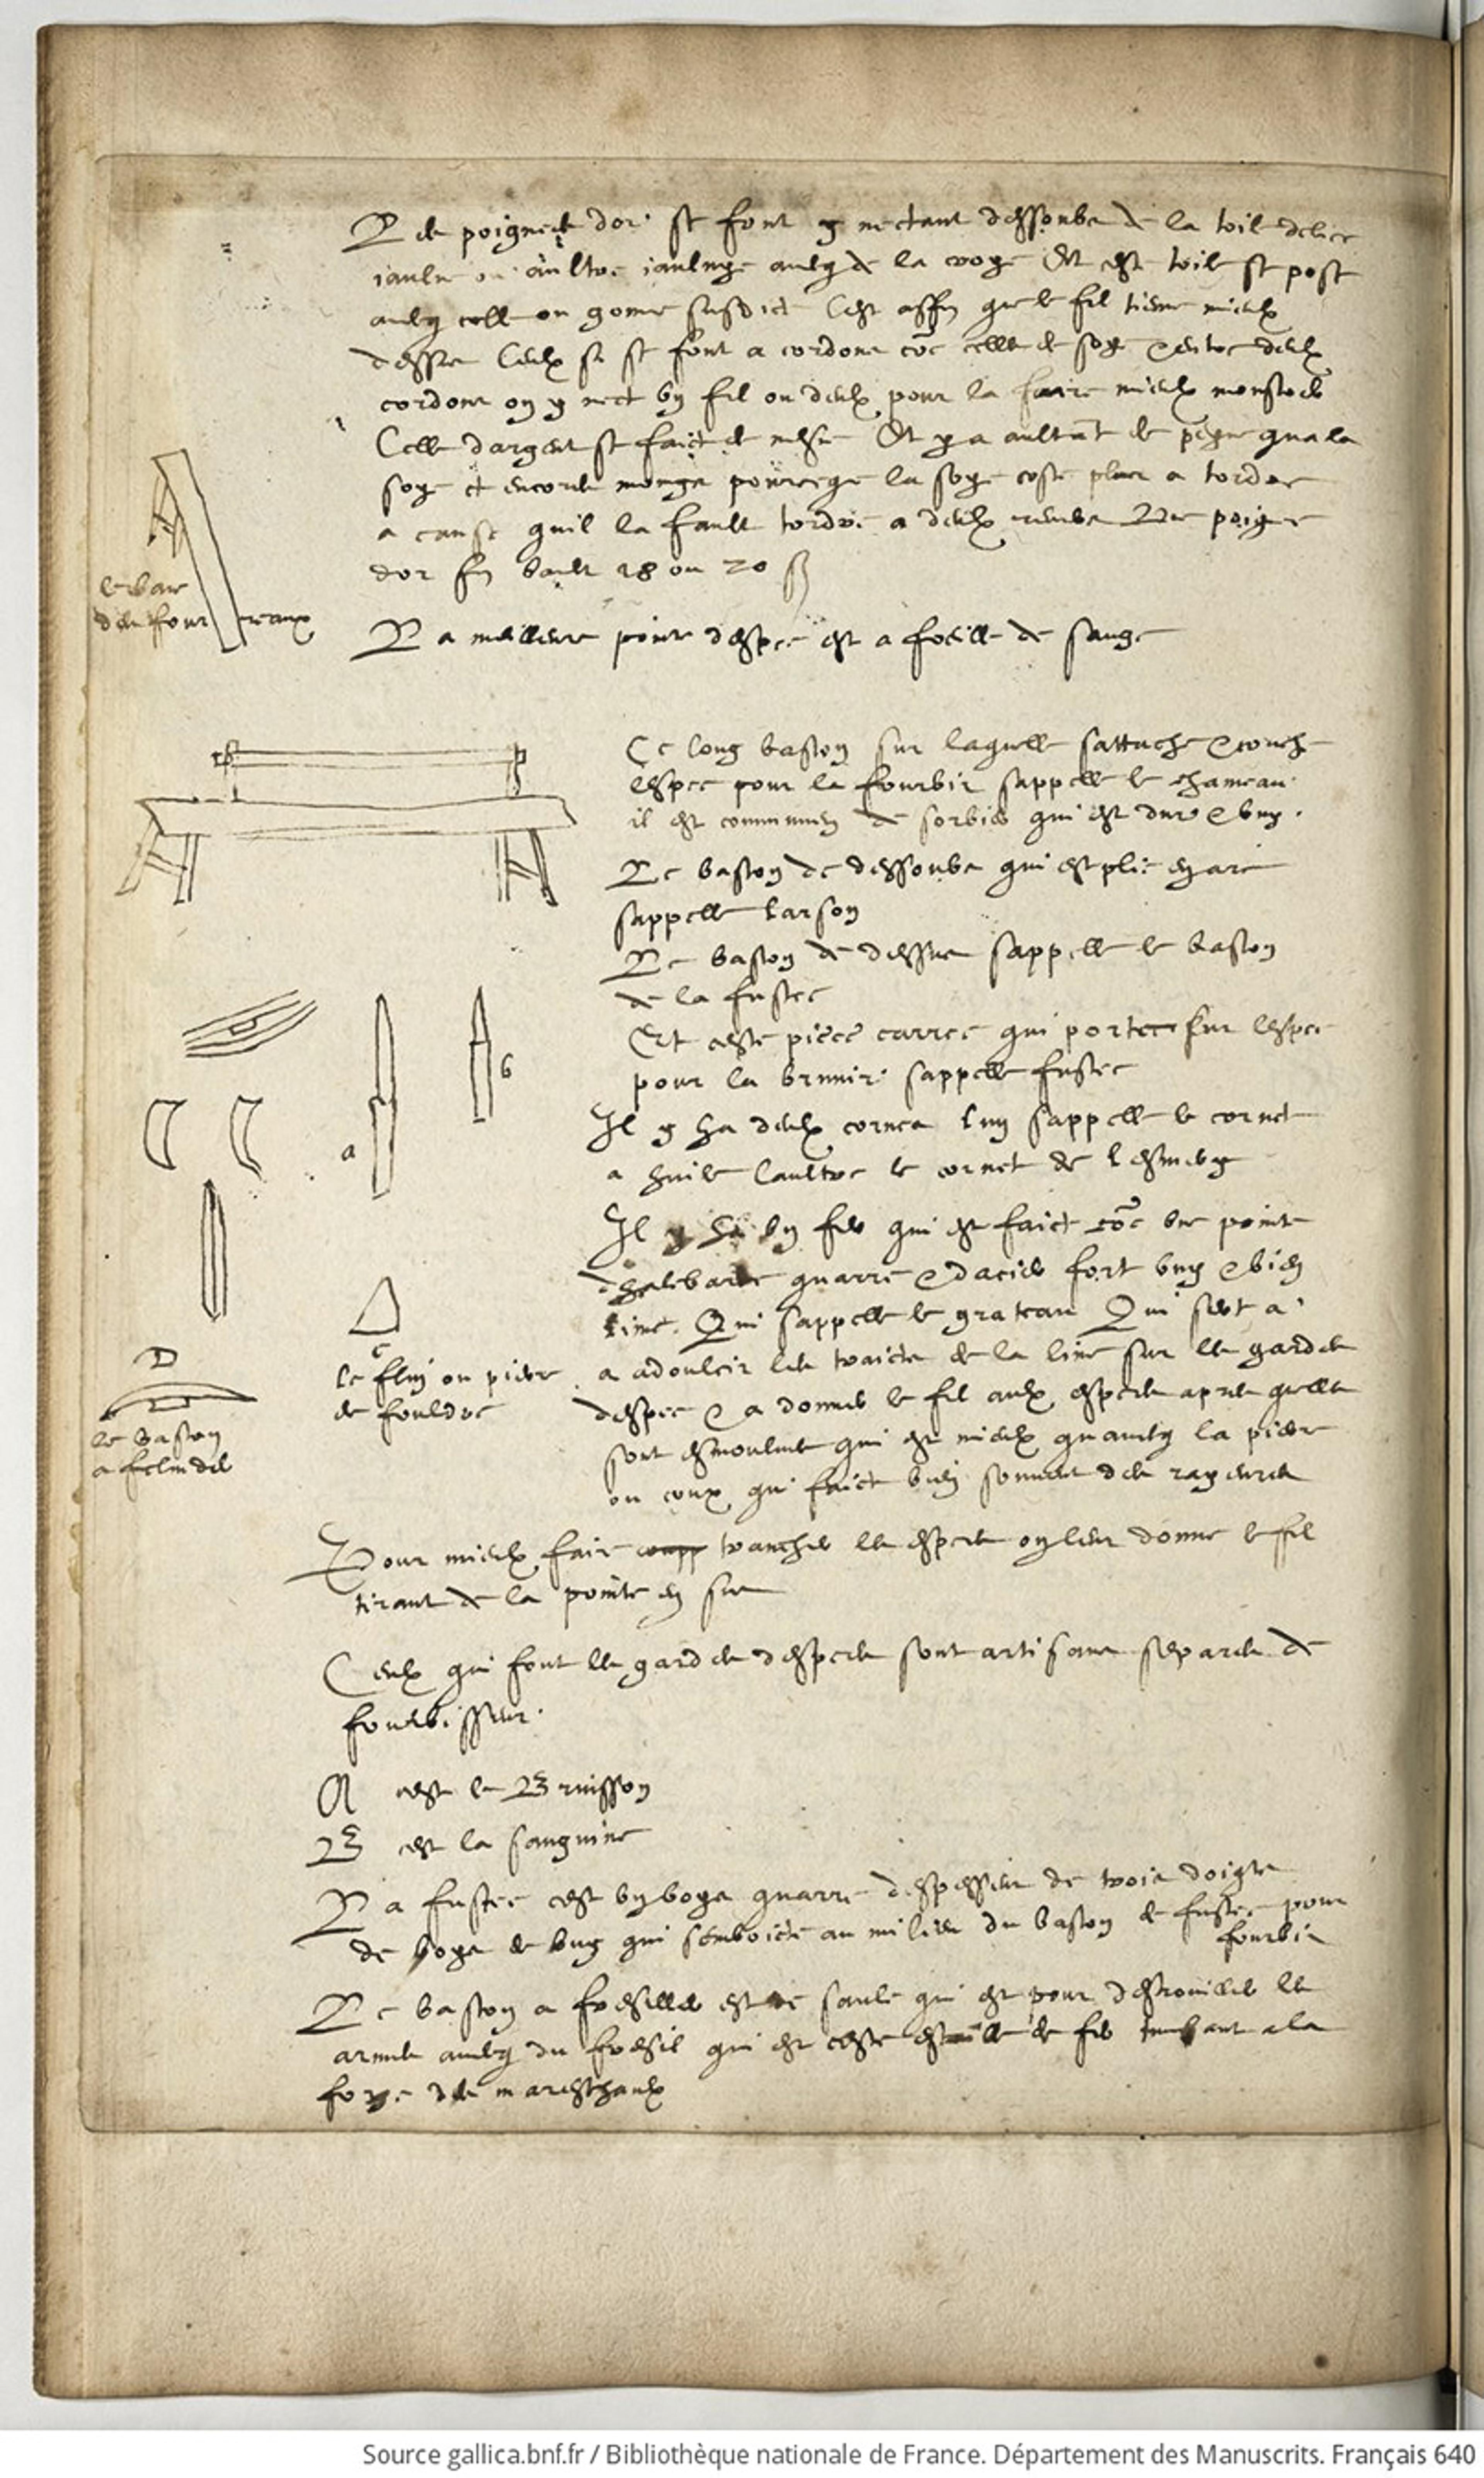 Les poignees dor se font y mectant dessoubs de la toile deliee
iaulne ou aultre iaulnye avecq de la croye Et ceste toile se pose
avecq colle ou gome susdict Cest affin que le fil tiene mieulx
dessus Ceulx si se font a cordons coe celle de soye & entre deulx
cordons on y mect un fil ou deulx pour la faire mieulx monstrer
Celle dargent se faict de mesme Et y a aultant de peyne qua la
soye et encores moings pourceque la soye couste plus a tordre
a cause quil la fault tordre a deulx Une poignee
dor fin vault 18 ou 20 s
le banc
des fourreaux
La meilleure poincte despee est a foeille de sauge
Ce long baston sur laquelle sattache & couche
lespee pour la fourbir sappelle le chameau
il est communem de sorbier qui est dur & uny.
Le baston de dessoubs qui est plie en arc
sappelle larson
Le baston de dessus sappelle le baston
de la fustee
Et ceste piece carree qui porte sur lespee
pour la brunir sappelle fustee
Il y ha deulx cornes lun sappelle le cornet
a huile laultre le cornet de lesmery
a
b
Il y ha un fer qui est faict coe une poincte
dhalebarde quarre & dacier fort uny & bien
lime. Qui sappelle le grateau Qui sert a
a adoulcir les traicts de la lime sur les gardes
despee & a donner le fil aulx espees apres quelles
sont esmoulues qui est mieulx quavecq la pierre
ou coux qui faict bien souvent des rayeures
c
le flin ou pierre
de fouldre
D
le baston
a
Pour mieulx faire coupp trancher les espees on leur donne le fil
tirant de la poincte en sus
Ceulx qui font les gardes despees sont artisans separes de
fourbisseur.
A cest le Brunisson
B cest la sanguine
La fustee cest un boys quarre despesseur de trois doigts
de boys de buy qui semboicte au milieu du baston de fustee pour
fourbir
Le baston a foesiller est de saule qui est pour desrouiller les
armes avecq du foesil qui est ceste escaille de fer tumbant a la
forge des mareschaulx
Source gallica.bnf.fr / Bibliothèque nationale de France. Département des Manuscrits. Français 640